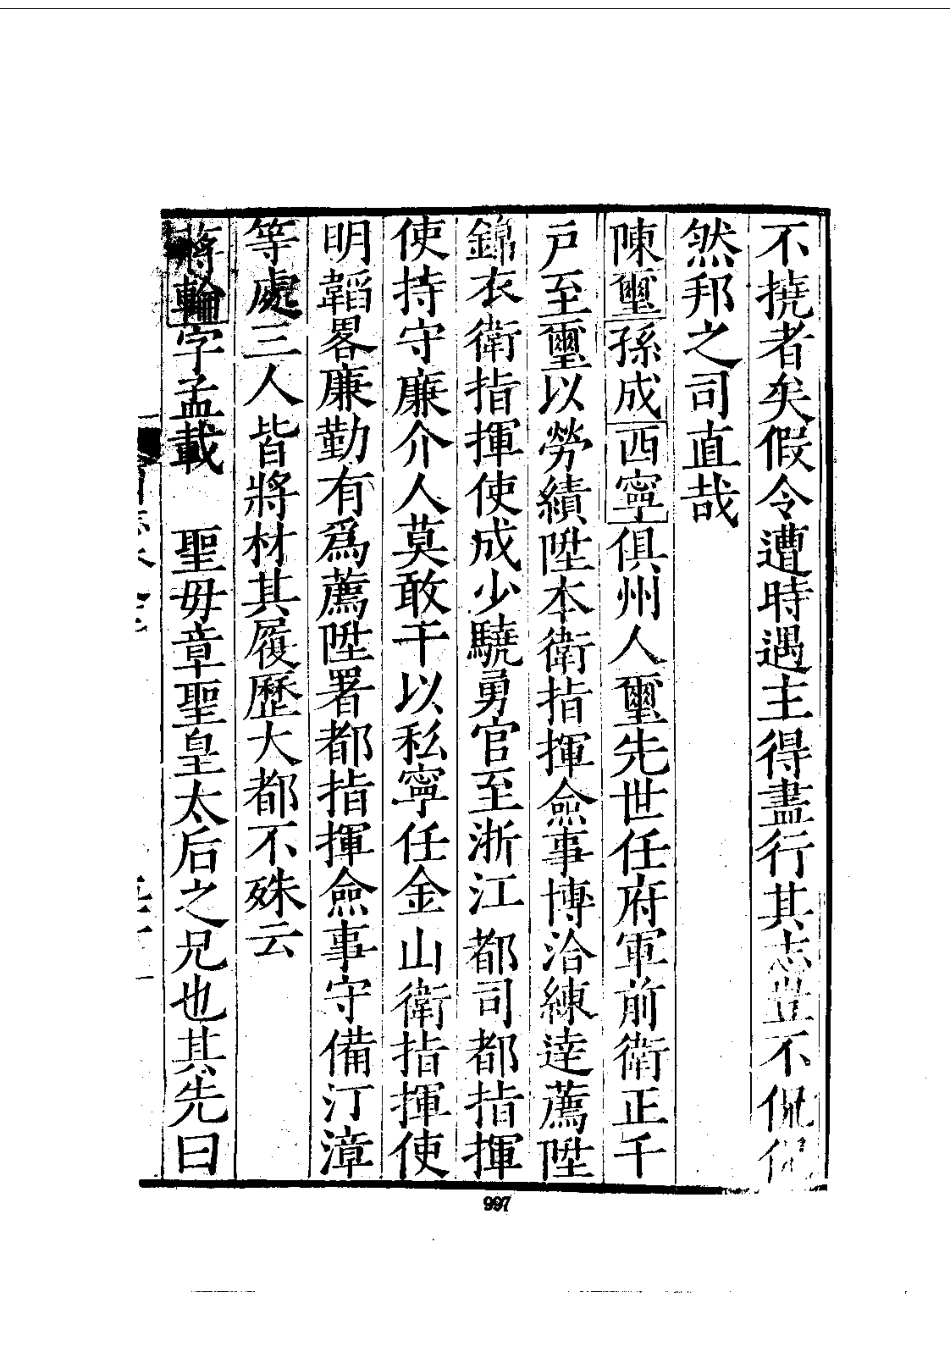 不撓者矣假令遭時遇主得盡行其志豈不侃侃
然邦之司直哉
陳璽孫成西寧俱州人璽先世任府軍前衛正千
戶至璽以勞績陞本衛指揮僉事博洽練達薦陞
錦衣衛指揮使成少驍勇官至浙江都司都指揮
使持守廉介人莫敢干以私寧任金山衛指揮使
明韜畧廉勤有為薦陞署都指揮僉事守備汀漳
等處三人皆將材其履歷大都不殊云
蔣輪字孟載　聖母章聖皇太后之兄也其先曰
997